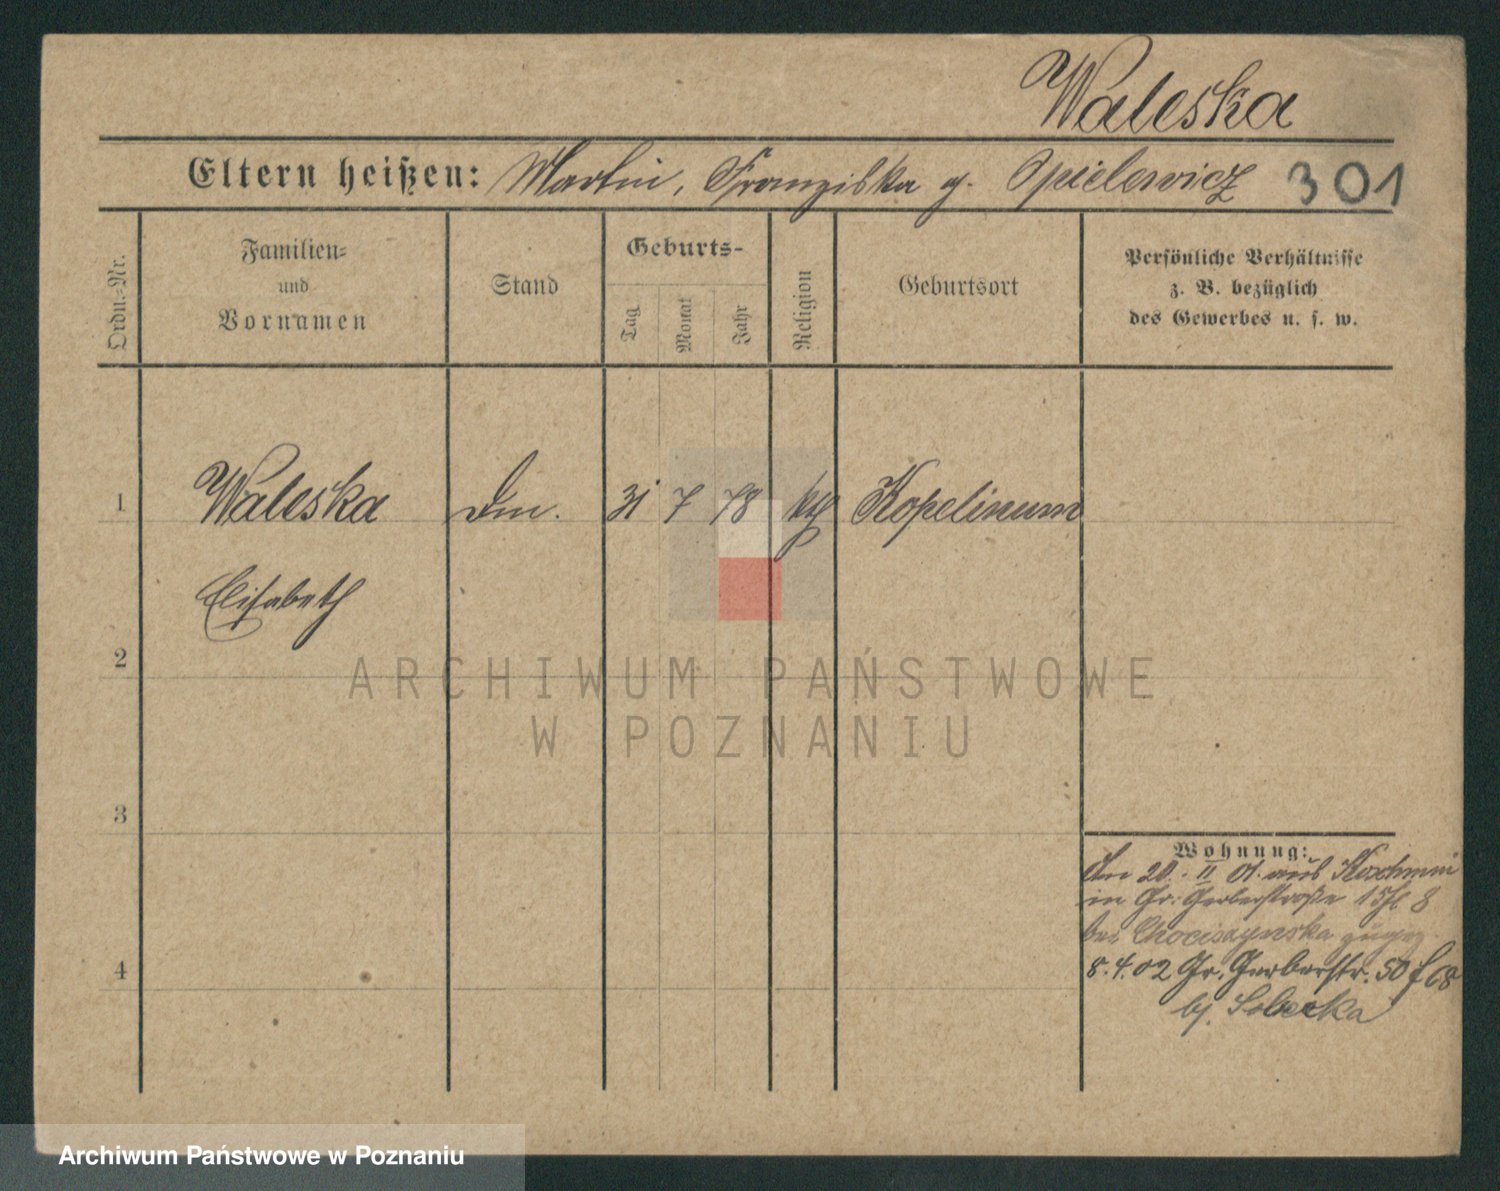 Waleska
Eltern heißen: Martin, Franziska g. Opielewicz 301
Ordn.-Nr.
Familien-
und
Vornamen
Stand
Geburts-
Tag
Monat
Jahr
Religion
Geburtsort
Persönliche Verhältnisse
z. B. bezüglich
des Gewerbes u. s. w.
1 Waleska 31 7 78 kth Kopelinum
Elisabeth
2
3
4
Wohnung:
Am 20. II 01. aus Koschmin
in Gr. Gerberstraße 15
bei Chociszynska zugez.
8.4.02 Gr. Gerberstr. 50
bj. Sobecka
ARCHIWUM PAŃSTWOWE
W POZNANIU
Archiwum Państwowe w Poznaniu